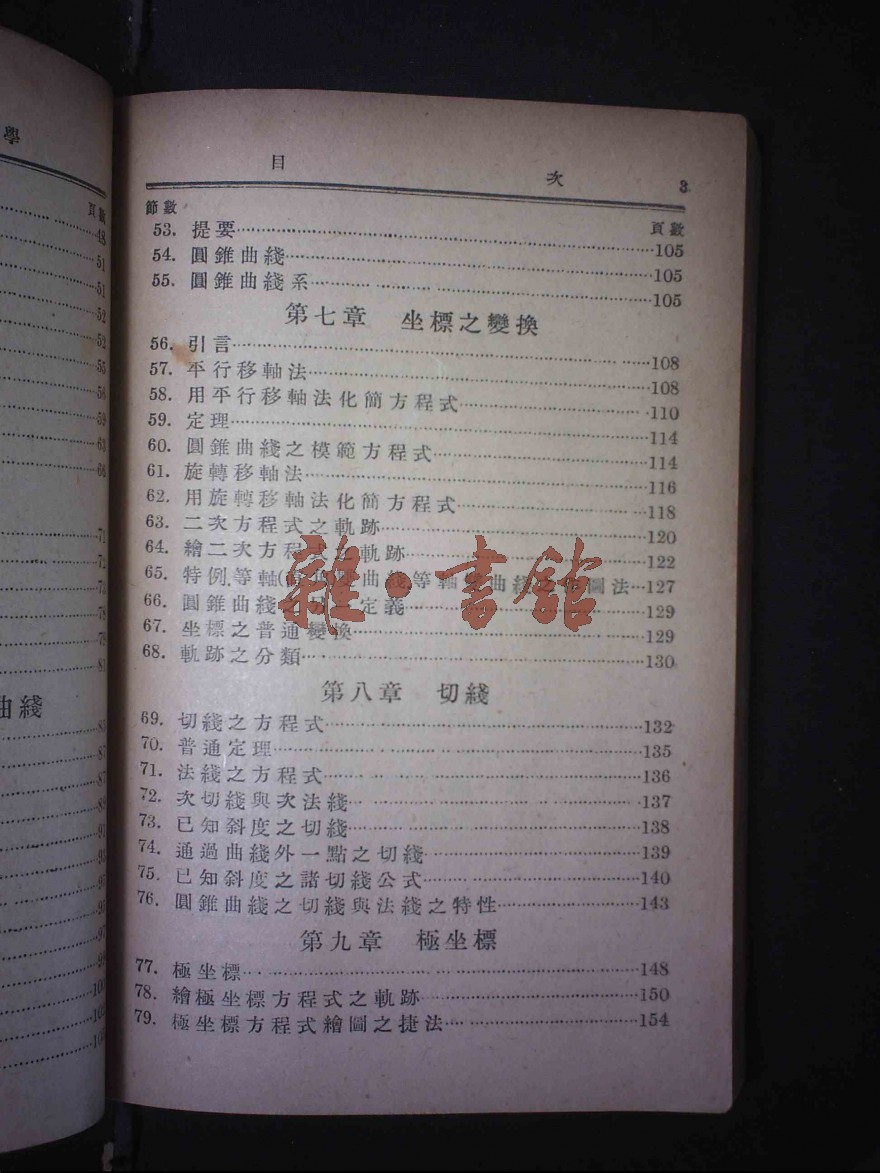 目 次 3
節數 頁數
53. 提要 105
54. 圓錐曲綫 105
55. 圓錐曲綫系 105
第七章 坐標之變換
56. 引言 108
57. 平行移軸法 108
58. 用平行移軸法化簡方程式 110
59. 定理 114
60. 圓錐曲綫之模範方程式 114
61. 旋轉移軸法 116
62. 用旋轉移軸法化簡方程式 118
63. 二次方程式之軌跡 120
64. 繪二次方程式之軌跡 122
65. 特例,等軸 曲綫,等軸 曲綫之作圖法 127
66. 圓錐曲綫之 定義 129
67. 坐標之普通變換 129
68. 軌跡之分類 130
雜·書館
第八章 切綫
69. 切綫之方程式 132
70. 普通定理 135
71. 法綫之方程式 136
72. 次切綫與次法綫 137
73. 已知斜度之切綫 138
74. 通過曲綫外一點之切綫 139
75. 已知斜度之諸切綫公式 140
76. 圓錐曲綫之切綫與法綫之特性 143
第九章 極坐標
77. 極坐標 148
78. 繪極坐標方程式之軌跡 150
79. 極坐標方程式繪圖之捷法 154
頁數
48
51
51
52
52
55
58
59
63
66
71
72
73
78
79
81
曲綫
85
87
87
89
91
93
97
96
97
99
100